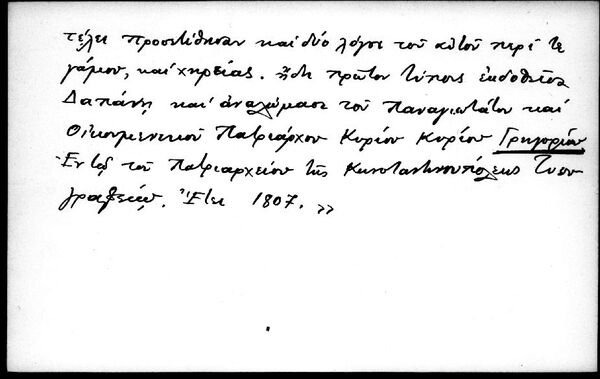 τέλει προσετίθησαν καὶ δύο λόγοι τοῦ αὐτοῦ περί τε
γάμου, καὶ χηρείας. ἤδη πρῶτον τύποις ἐκδοθεῖσα
Δαπάνῃ καὶ ἀναλώμασι τοῦ Παναγιωτάτου καὶ
Οἰκουμενικοῦ Πατριάρχου Κυρίου Κυρίου Γρηγορίου
Ἐν τῷ τοῦ Πατριαρχείου τῆς Κωνσταντινουπόλεως Τυπο
γραφείῳ. Ἔτει 1807. »